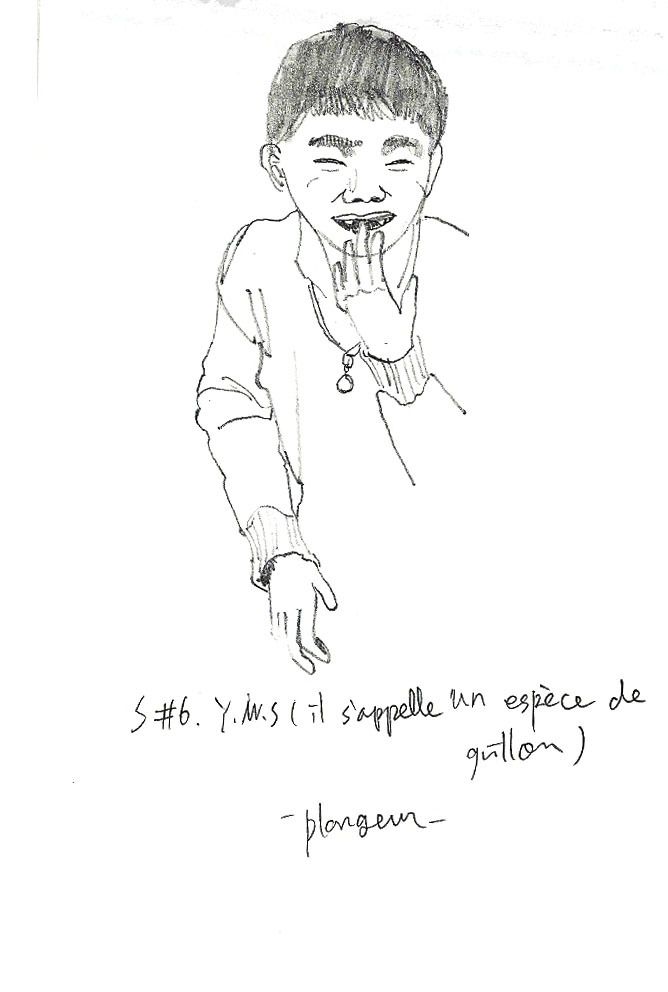 S#6. Y.W.S ( il s'appelle un espèce de
guillon )
-plongeur-